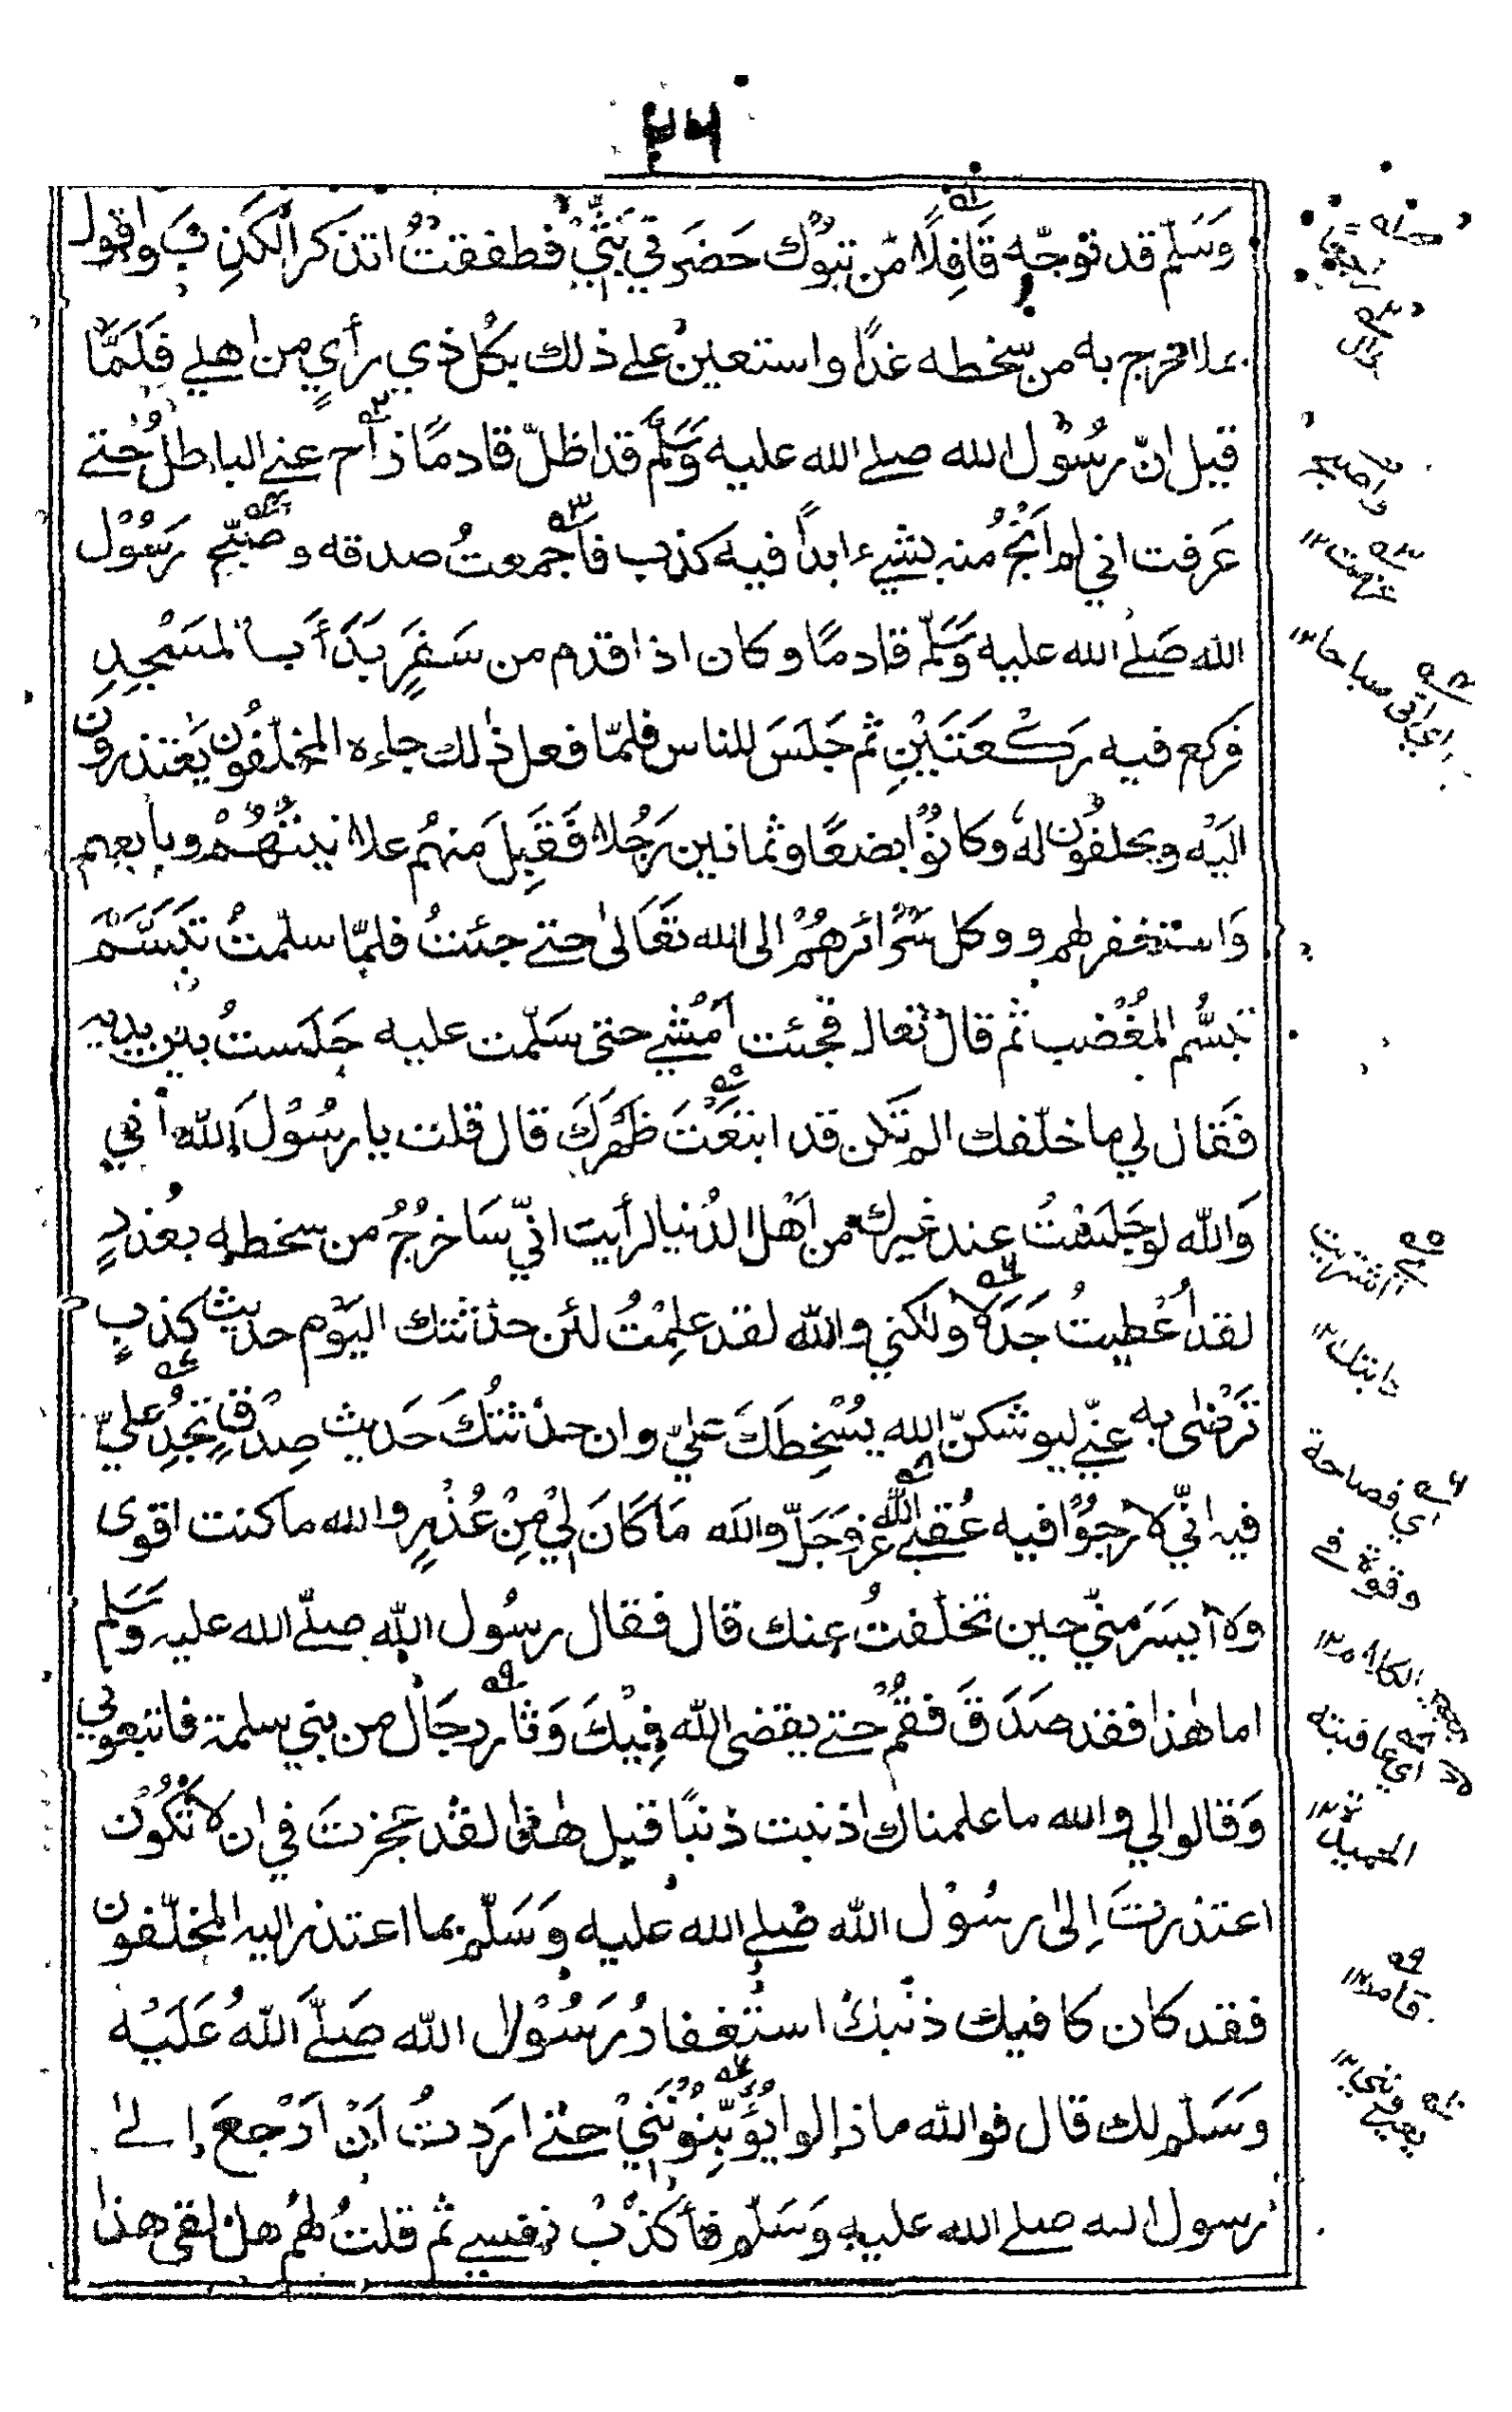 ٢٦
وَسَلّم قد توجّه قَافِلًا من تبُوْك حَضَرَني بَثّيْ فطفقتُ اتذكر الكَذِبَ واقول
بما اخرج به من سخطه غدًا واستعينُ علے ذلك بكُل ذي رأيٍ من اهلے فَلَمَّا
قيل انّ رسُوْل الله صلے الله عليه وَسَلَّم قد اظلّ قادمًا زاح عنے الباطلُ حتے
عَرفت اني لم اَنْجُ منه بشيء ابدًا فيه كذب فاجمعتُ صدقه وصَبَّح رَسُوْل
الله صَلے الله عليه وَسَلّم قادمًا وكان اذا قدم من سَفَرٍ بَدَأَ بالمَسْجِدِ
فركع فيه رَكْعَتَيْنِ ثم جَلَسَ للناس فلمّا فعل ذٰلك جاءه المخلّفُون يَعْتذرون
اليْه ويحلفُون لهٗ وكانُوْا بضعًا وثمانين رَجُلا فَقَبِلَ منهُم علانيتُهُمْ وبايعهم
وَاستغفر لهم ووكل سَرَائرهُمْ الى الله تَعَالىٰ حتے جئتُ فلمّا سلّمتُ تَبَسَّمَ
تبسُّم المغْضب ثم قال تعال فجئت اَمْشے حتى سَلّمت عليه جَلَستُ بين يديه
فَقال لي ما خلّفك الم تَكن قد ابتَعْتَ ظَهْرَكَ قال قلت يا رسُوْلَ الله اني
وَالله لو جَلَسْتُ عند غيرك من اَهْل الدُنيا لرأيت انّي سَاخرُجُ من سخطه بعُذرٍ
لقد اُعْطِيتُ جَدَلًا ولكني والله لقد علِمْتُ لئن حدّثتك اليَوْم حديث كذبٍ
تَرْضٰى به عنّے ليوشكنّ الله يسْخِطَكَ عليّ وان حدّثتُكَ حَديث صِدْقٍ تَجِدُ عليّ
فيه انّي لَارجُوْا فيه عُقبے الله عزوَجَلّ والله مَا كَانَ لِيْ مِنْ عُذْرٍ والله ما كنت اقوى
ولا اَيسَرَ منّي حين تخلّفتُ عنك قال فقال رسُول الله صلّے الله عليه وَسَلم
اما هٰذا فقد صَدَقَ فقُمْ حتے يقضى الله فِيْكَ وَثار رجَالٌ من بني سلمة فاتبعوني
وَقالوا لي والله ما علمناك اذنبت ذنبًا قبل هٰذا لقد عجزتَ في ان لا تكُوْن
اعتذرتَ اِلىٰ رسُوْل الله صَلے الله عليه وَسَلّم بما اعتذر اليه المخلّفون
فقد كان كافيك ذنبكَ استغفارُ رَسُوْل الله صَلَّے اللهُ عَلَيْه
وَسَلّم لك قال فوالله ما زالوا يُؤَنِّبُوْنَنِيْ حتے اردتُ اَنْ اَرْجعَ إلےٰ
رسول الله صلے الله عليه وَسَلّم فأُكذّبُ نفسے ثم قلتُ لهُم هل لقى هذا
زال
عزمت ١٢
اي اتى صباحا ١٢
اشتريت
دابتك ١٢
اي فصاحة
وقوة في
الكلام ١٢
اي عاقبته
الحميدة ١٢
قام ١٢